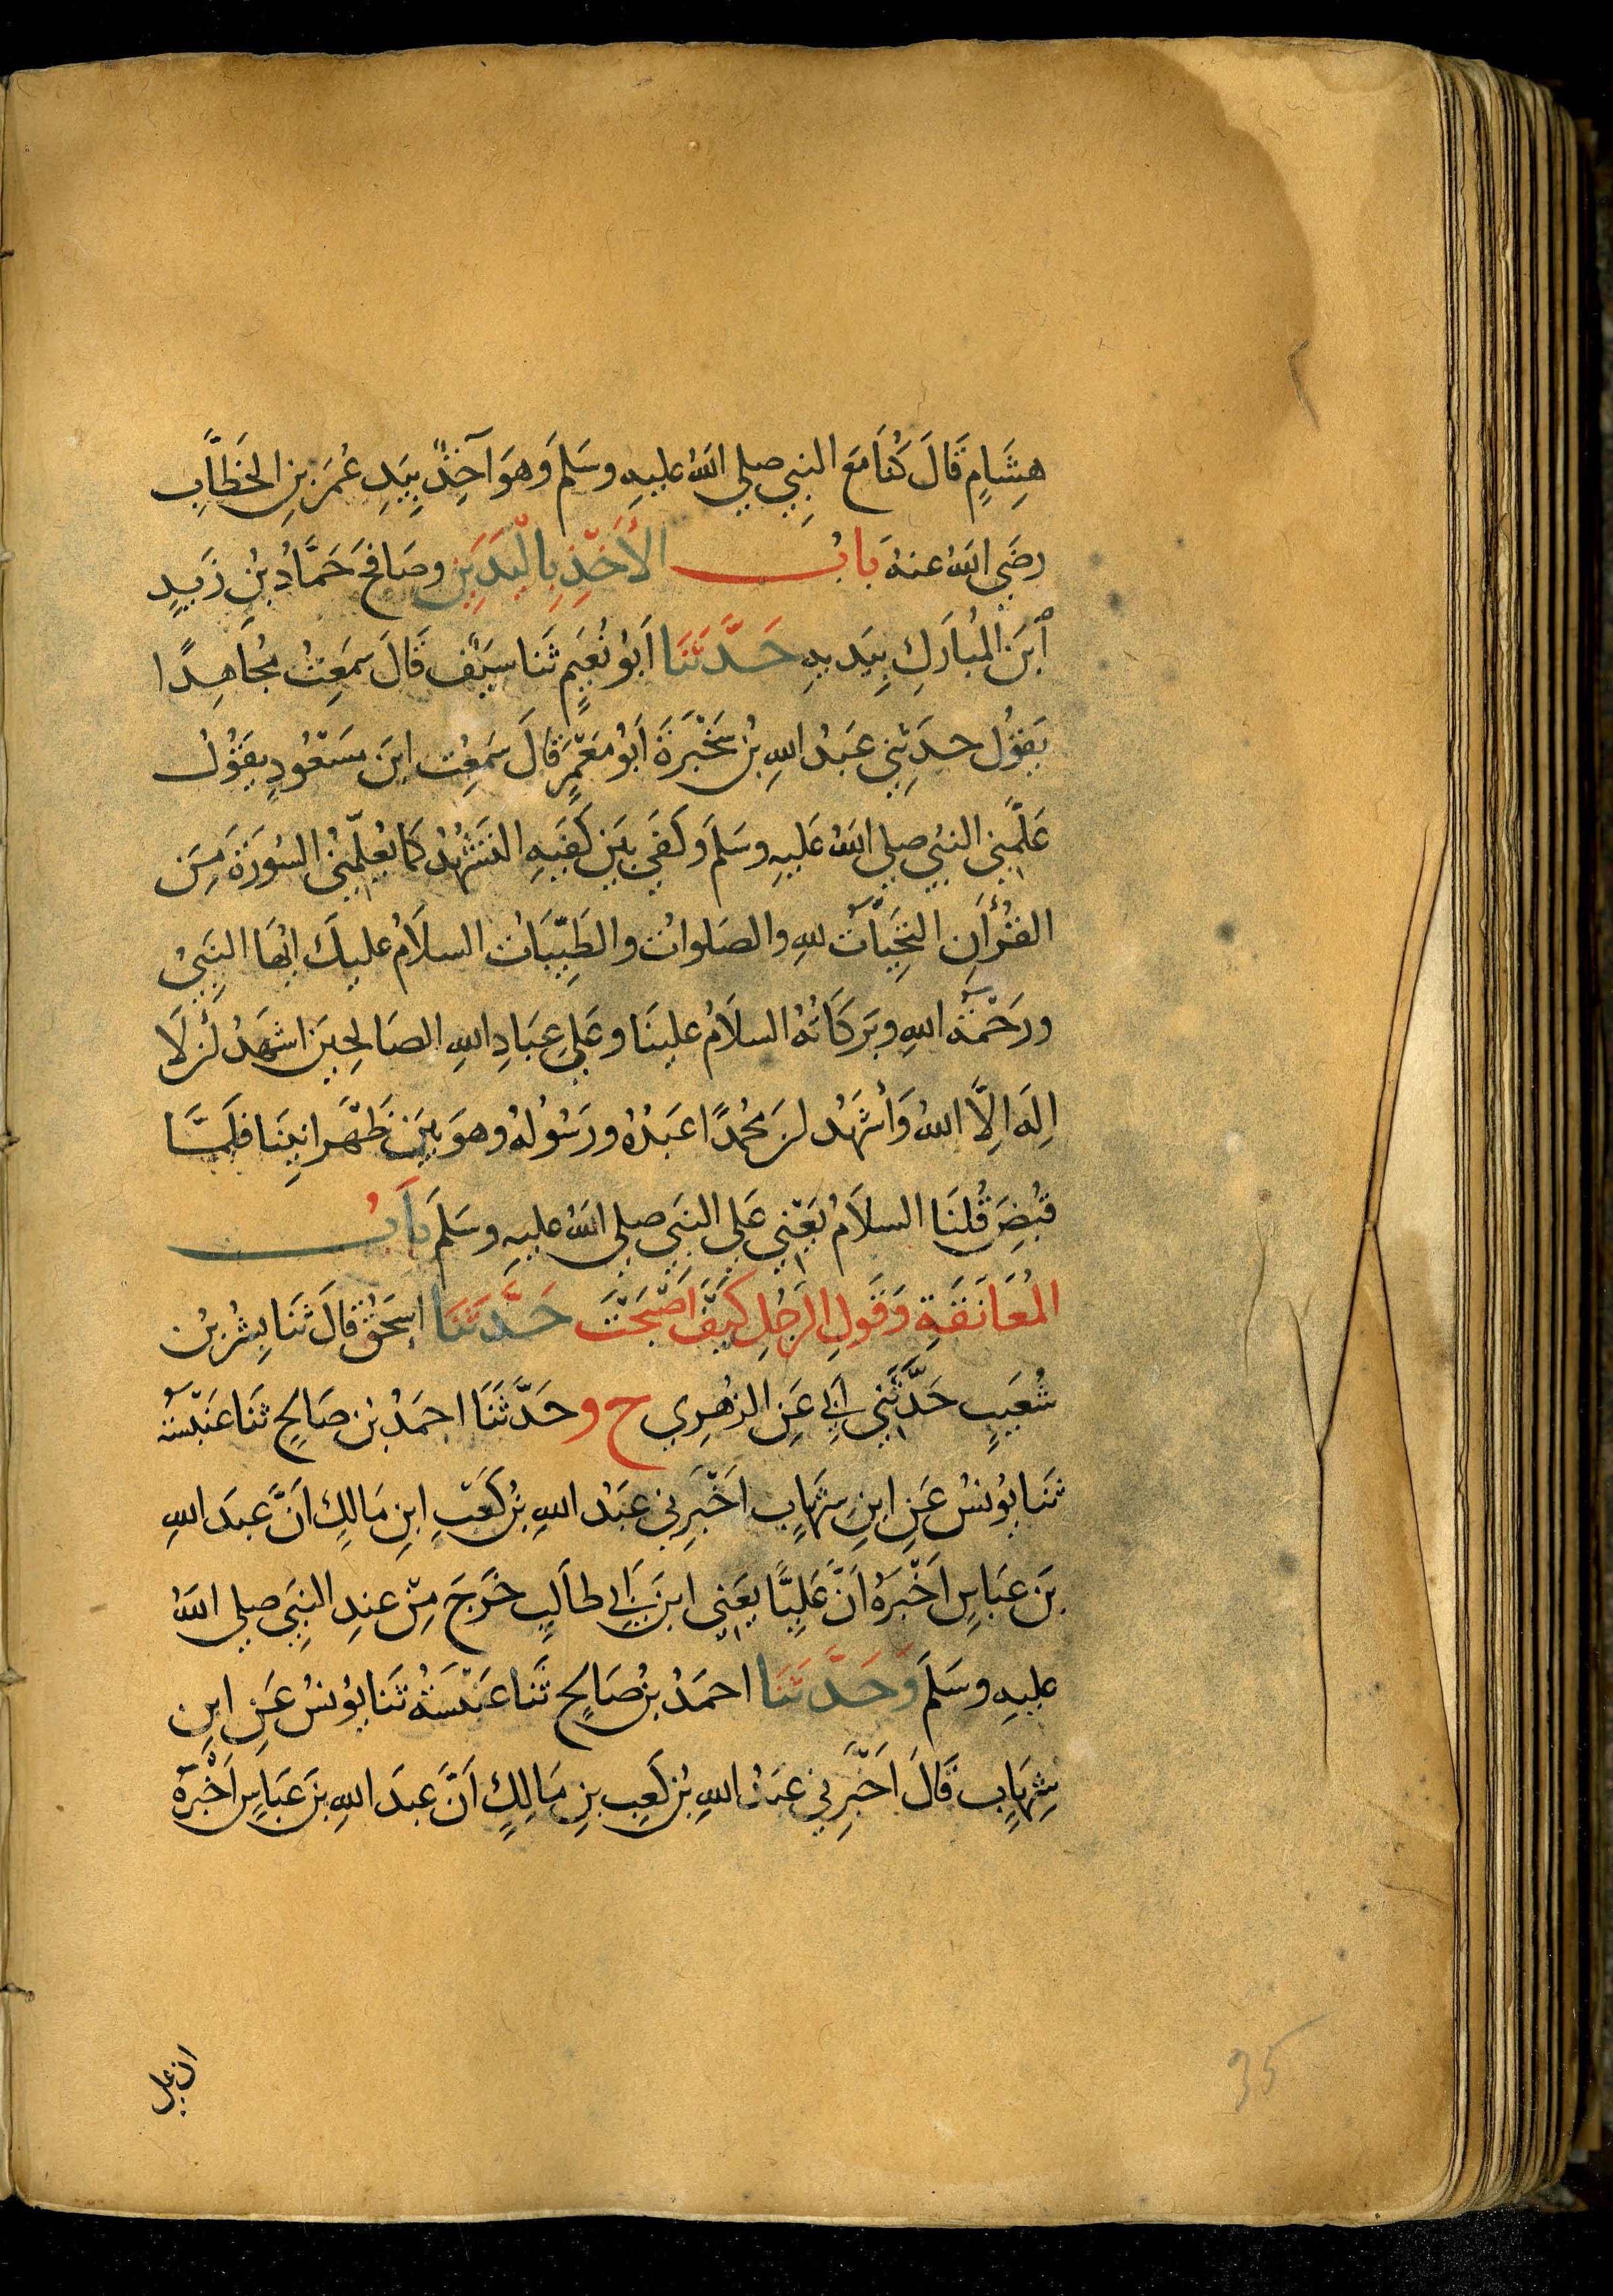 هِشَامٍ قَالَ كُنَا مَعَ النبِي صلي اللهُ عليهِ وسَلمَ وَهوَ آخِذٌ بِيَدِ عُمَرَ بنِ الخَطَّابِ
رضَيِ اللهُ عنهُ بَابُ الأَخْذِ بِاليَدَيَنِ وصَافَحَ حَمَّادُ بنُ زَيدٍ
اَبنَ المُبارَكِ بِيَديهِ حَدَّثَنَا اَبوُ نُعَيمٍ ثَنا سَيفٌ قَالَ سَمَعِتُ مُجاهِدًا
يَقوُل حدَثِني عَبدُ اللهِ بنُ سَخْبَرَةَ اَبوُ مَعْمَرٍ قَالَ سَمعِتُ ابنَ مسَعُودٍ يقَوُلُ
عَلَّمِني النبي صلي اللهُ عَليهِ وسَلمَ وَكَفي بيَن كَفيَهِ التَشَهُدَ كَمَا يُعلّمِنُي السُورَةَ مِنَ
القُرآنِ التَحِيَّاتُ للهِ والصَلواتُ والطَيِّبَاتُ السلاَمُ عليكَ ايُهَا النَبِيُ
ورَحَمْةُ اللهِ وبَرَكَاتهُ السلاَمُ علينَا وعَليِ عِبَادِ اللهِ الصَالحِينَ اشهَدُ اَن لاَ
اِلَهَ اِلاَّ اللهُ وَاَشهَدُ اَن مُحمدًا عَبدُهُ ورَسُولهُ وهوَ بَينَ ظَهْرَانيَنَا فلَمَّا
قبُضِ قُلنَا السلاَمُ يَعْنِي عَلي النبَيِ صلي اللهُ عليهِ وسَلمَ بَابُ
المُعَانَقَةِ وَقَولِ الرَجُلِ كَيَفَ اَصْبَحْتَ حَدَّثَنَا اِسحَقُ قَالَ ثَنَا بِشرُ بنُ
شُعَيبٍ حَدَّثَنِي اَبِي عَنِ الزهُرِي ح وحَدَّثَنَا احمَدُ بنُ صَالِحٍ ثنَا عَنْبَسَةُ
ثَنَا يوُنسُ عَنِ ابنِ شِهَابٍ اَخْبَرِني عَبَدُ اللهِ بنُ كَعْبِ ابنِ مَالِكٍ اَنَّ عبدَ اللهِ
بنَ عبَاسٍ اَخْبَرهُ اَنَّ عَلِيًا يعَني ابنَ اَبِي طاَلبٍ خَرَجَ مِنْ عندِ النبَيِ صلي اللهُ
عليهِ وسَلَمَ وَحَدَّثَنَا احمَدُ بنُ صَالحٍ ثَنَا عَنْبَسَةُ ثَنا يوُنسُ عَنِ ابنِ
شِهَابٍ قَالَ اَخْبَرِني عَبدُ اللهِ بنُ كَعبِ بنِ مَالِكٍ اَنَّ عبدَ اللهِ بنَ عَبَاسٍ اَخْبَرَهُ
ان علي
35